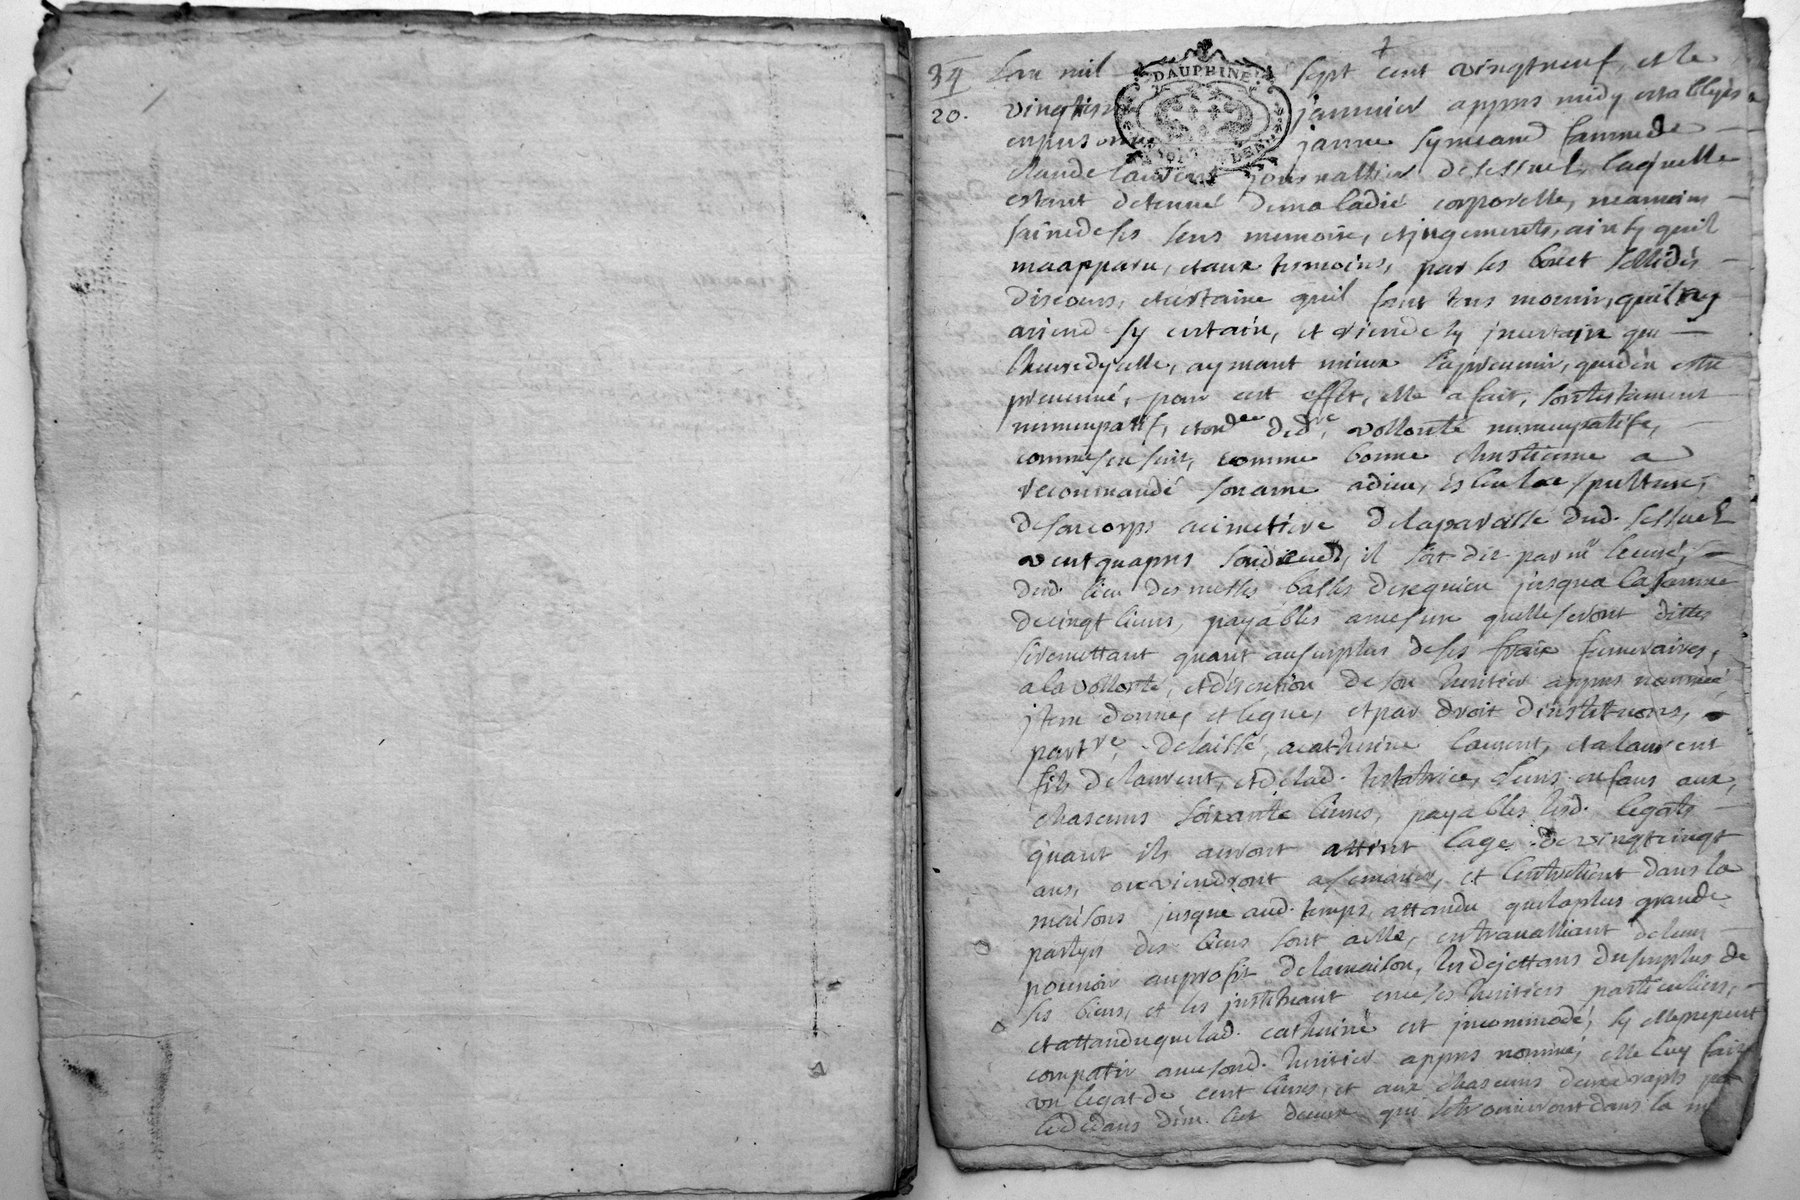 34
20.
DAUPHINE
Lan mil sept cent vingtneuf, et le
vingtiesme jannvier appres midy establyes
en personne janne symeand famme de
Claude laurent journallier de sessuel, laquelle
estant detenue demaladie corporelle, neamoins
sainedeses sens memoire, et jugements, ainsy quil
maapparu, etaux tesmoins, par ses bon et sollides
discours, et certaine quil faut tous mourir, quil ny
ariend sy certain, et riende sy jncertain que
lheuredycelle, aymant mieux la prevenir, queden estre
prevenue, pour cet effet, elle a fait, sontestament
nuncupatif, et ordre de dre vollonte nuncupatife,
comme sen suit, comme bonne chrestienne a
recommandé soname adieu, esleu la sepulture,
desoncorps acimetiere delaparoisse dud. sessuel
veutquapres sondeced, il soit dit par mr lecuré,
dud. lieu des messes basses derequiem jusqua lasomme
decinqt livres, payables amesure quelleseront dittes
seremettant quant ausurplus deses fraix funeraires,
alavollonté, et discretion de son heritier appres nommé
jtem donne, et legue, et par droit dinstitutions,
partre, delaissé, acatherine laurent, et a laurent
fils delaurent, et delad. testatrice, leurs enfans aux,
chascuns soixante livres, payables lesd. legats
quant ils auront attint lage de vingtcinqt
ans, ouviendront asemarier, et lentretient dans la
maisons jusque aud. temps, attandu quelaplus grande
partyes des biens sont aelle, entravalliant deleur
pouvoir auprofit delamaison, les dejettans dusurplus de
ses biens, et les jnstituant en ce ses heritiers particuliers,
et attanduquelad. catherine est jncommodé, sy ellenepeut
compatir avesond. heritier appres nommé, elle luy fait
vn legat de cent livres, et aux chascuns deuxdraps
qui setrouveront dans la